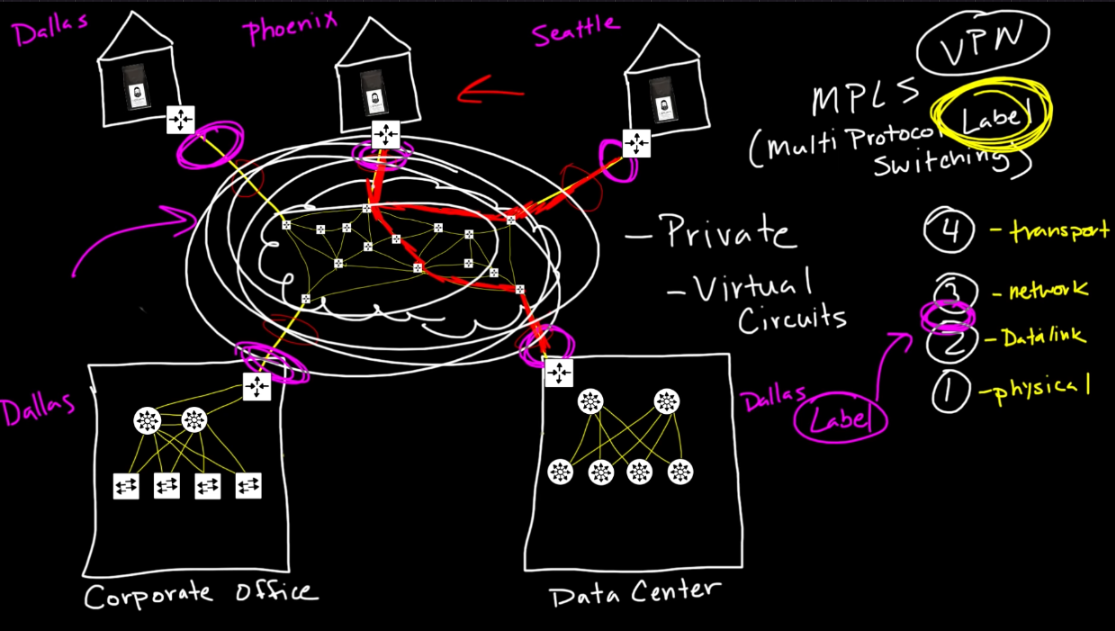 Dallas
Phoenix
Seattle
VPN
MPLS
(Multi Protocol Label
Switching)
- Private
- Virtual
Circuits
4 - transport
3 - network
2 - Datalink
1 - physical
Dallas
Dallas
Label
Corporate Office
Data Center